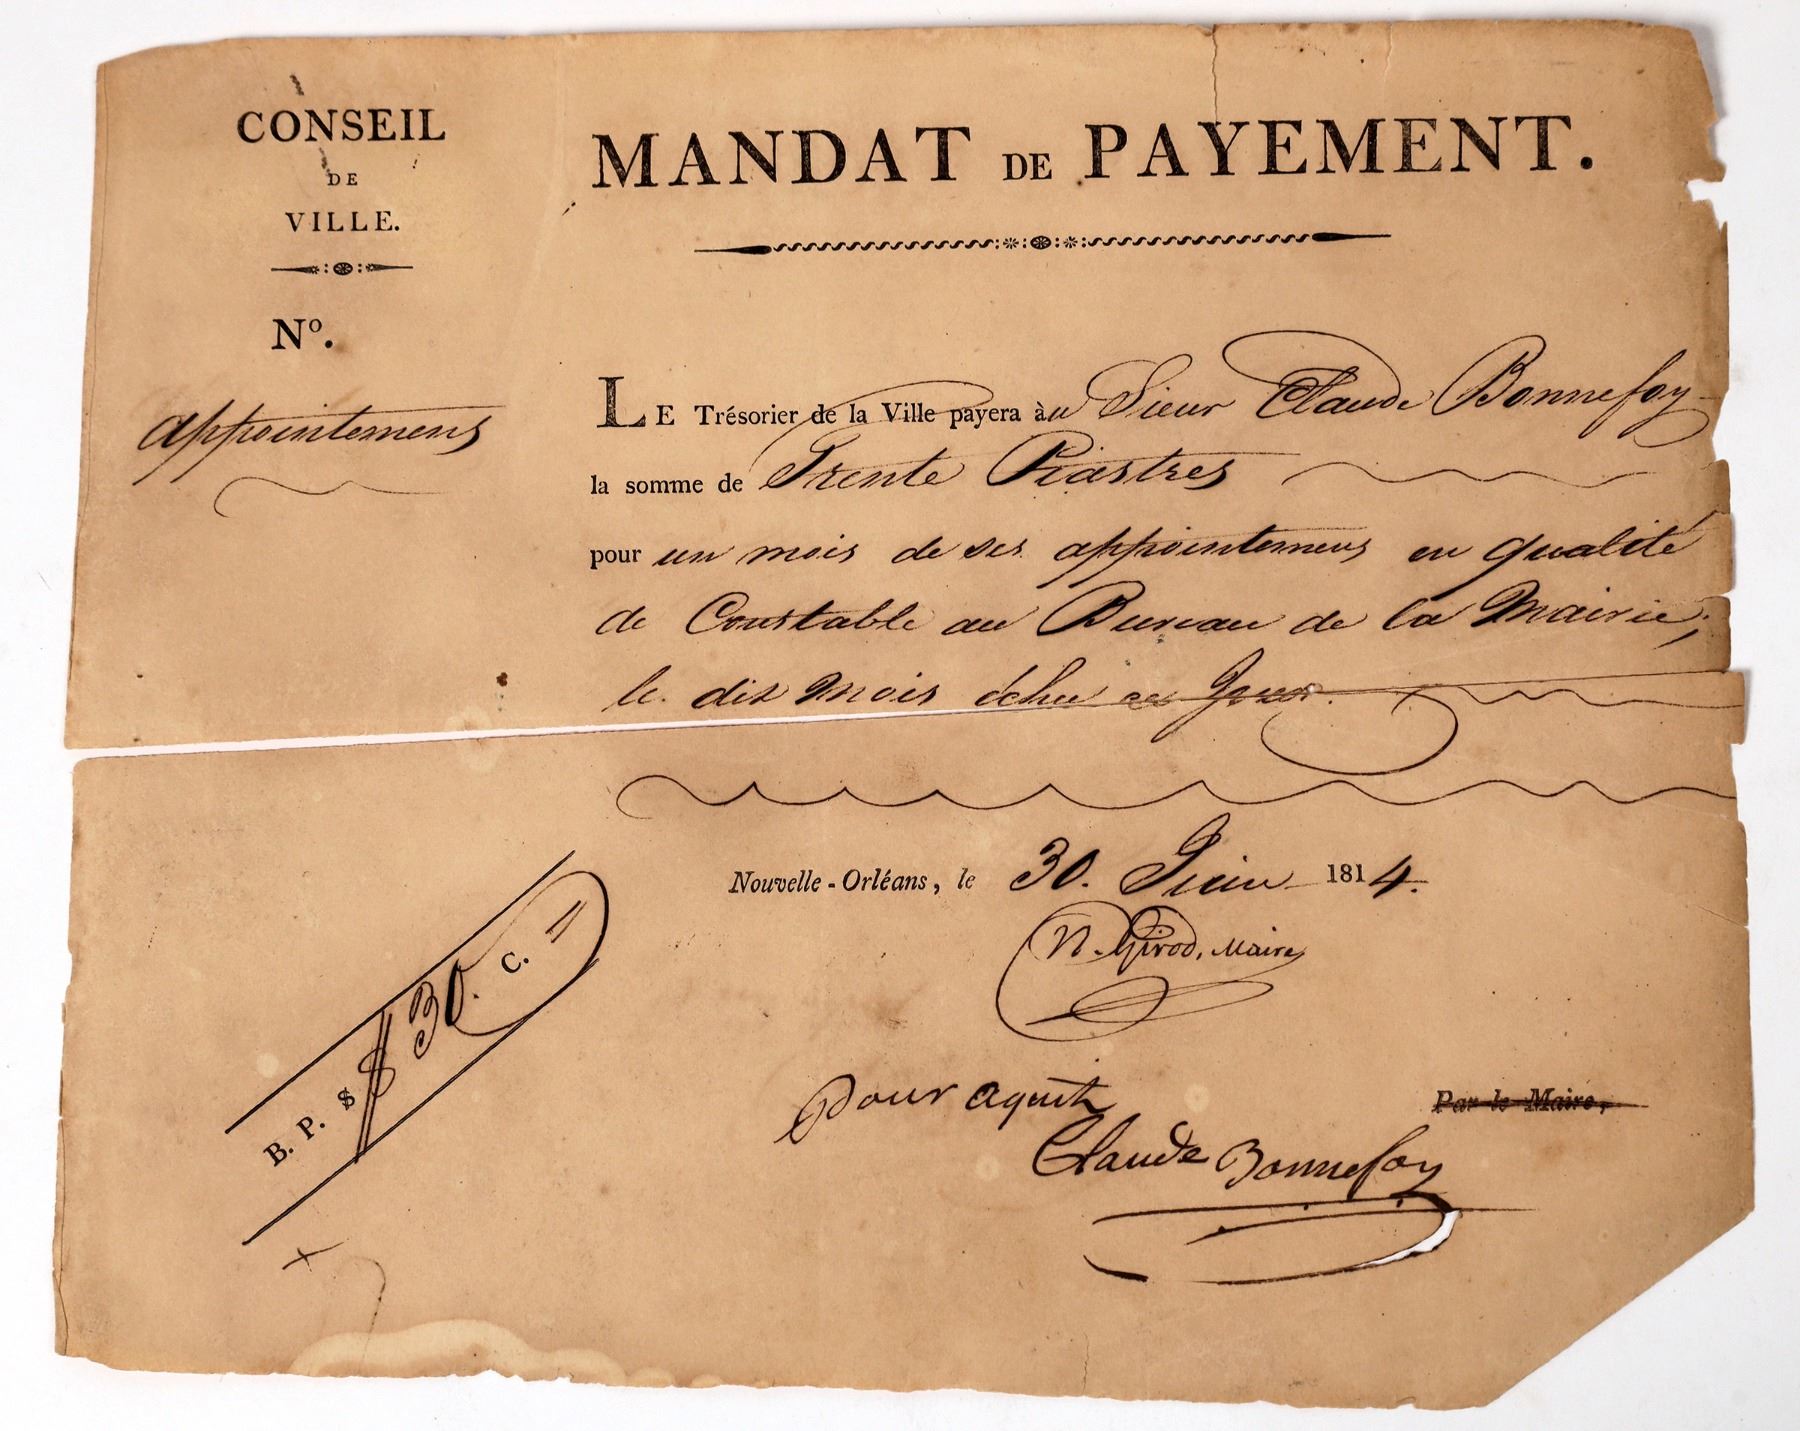 CONSEIL
DE
VILLE.
Nº.
appointemens
MANDAT DE PAYEMENT.
LE Trésorier de la Ville payera àu Sieur Claude Bonnefoy
la somme de Trente Piastres
pour un mois de ses appointemens en qualité
de Constable au Bureau de la Mairie,
le dit Mois échu ce Jour.
Nouvelle-Orléans, le 30. Juin 1814.
N. Girod, Maire
B. P. $ 30. C. "
pour aquit
Par le Maire,
Claude Bonnefoy